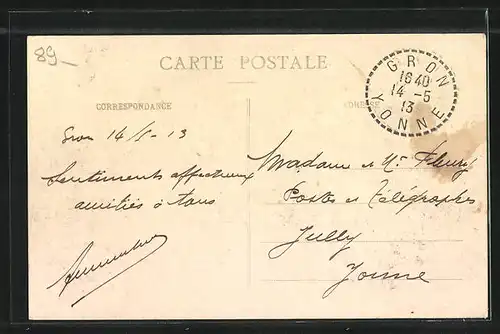 89_
CARTE POSTALE
CORRESPONDANCE
ADRESSE
GRON
16 40
14 - 5
13
YONNE
Gron 14/5 - 13
Sentiments affectueux
amitiés à tous
Madame et Mr Fleury
Postes et Télégraphes
Jully
Yonne